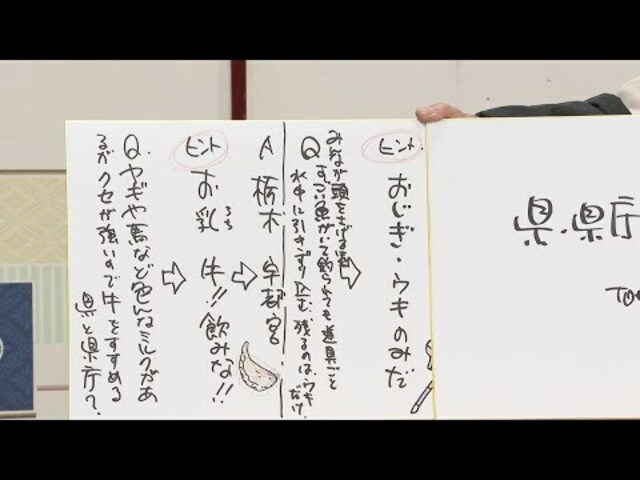 県・県庁
ヒント
おじぎ・ウキのみだ
みなが頭をさげる
Q すっごい魚がいて釣られても道具ごと
水中に引きずり込む、残るのは、ウキだけ
A 栃木 ⇨ 宇都宮
ヒント
お乳 ⇨ 牛!! 飲みな!!
Q. ヤギや馬など色んなミルクがあ
るがクセが強いので牛をすすめる
県と県庁?